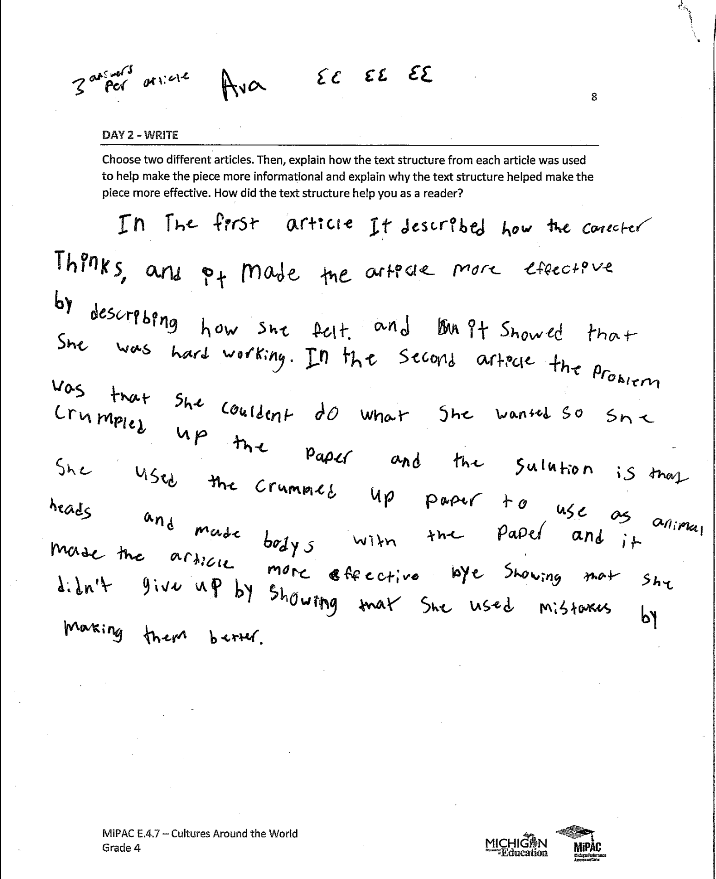 3 answers per article Ava EE EE EE
8
DAY 2 – WRITE
Choose two different articles. Then, explain how the text structure from each article was used
to help make the piece more informational and explain why the text structure helped make the
piece more effective. How did the text structure help you as a reader?
In The first article It described how the carecter
Thinks, and it made the article more effective
by describing how she felt. and it showed that
She was hard working. In the second article the problem
was that she couldent do what she wanted so she
crumpled up the paper and the sulution is that
She used the crummed up paper to use as animal
heads and made bodys with the paper and it
made the article more effective bye showing that she
didn't give up by showing that she used mistakes by
making them better.
MiPAC E.4.7 – Cultures Around the World
Grade 4
MICHIGAN
Education
MiPAC